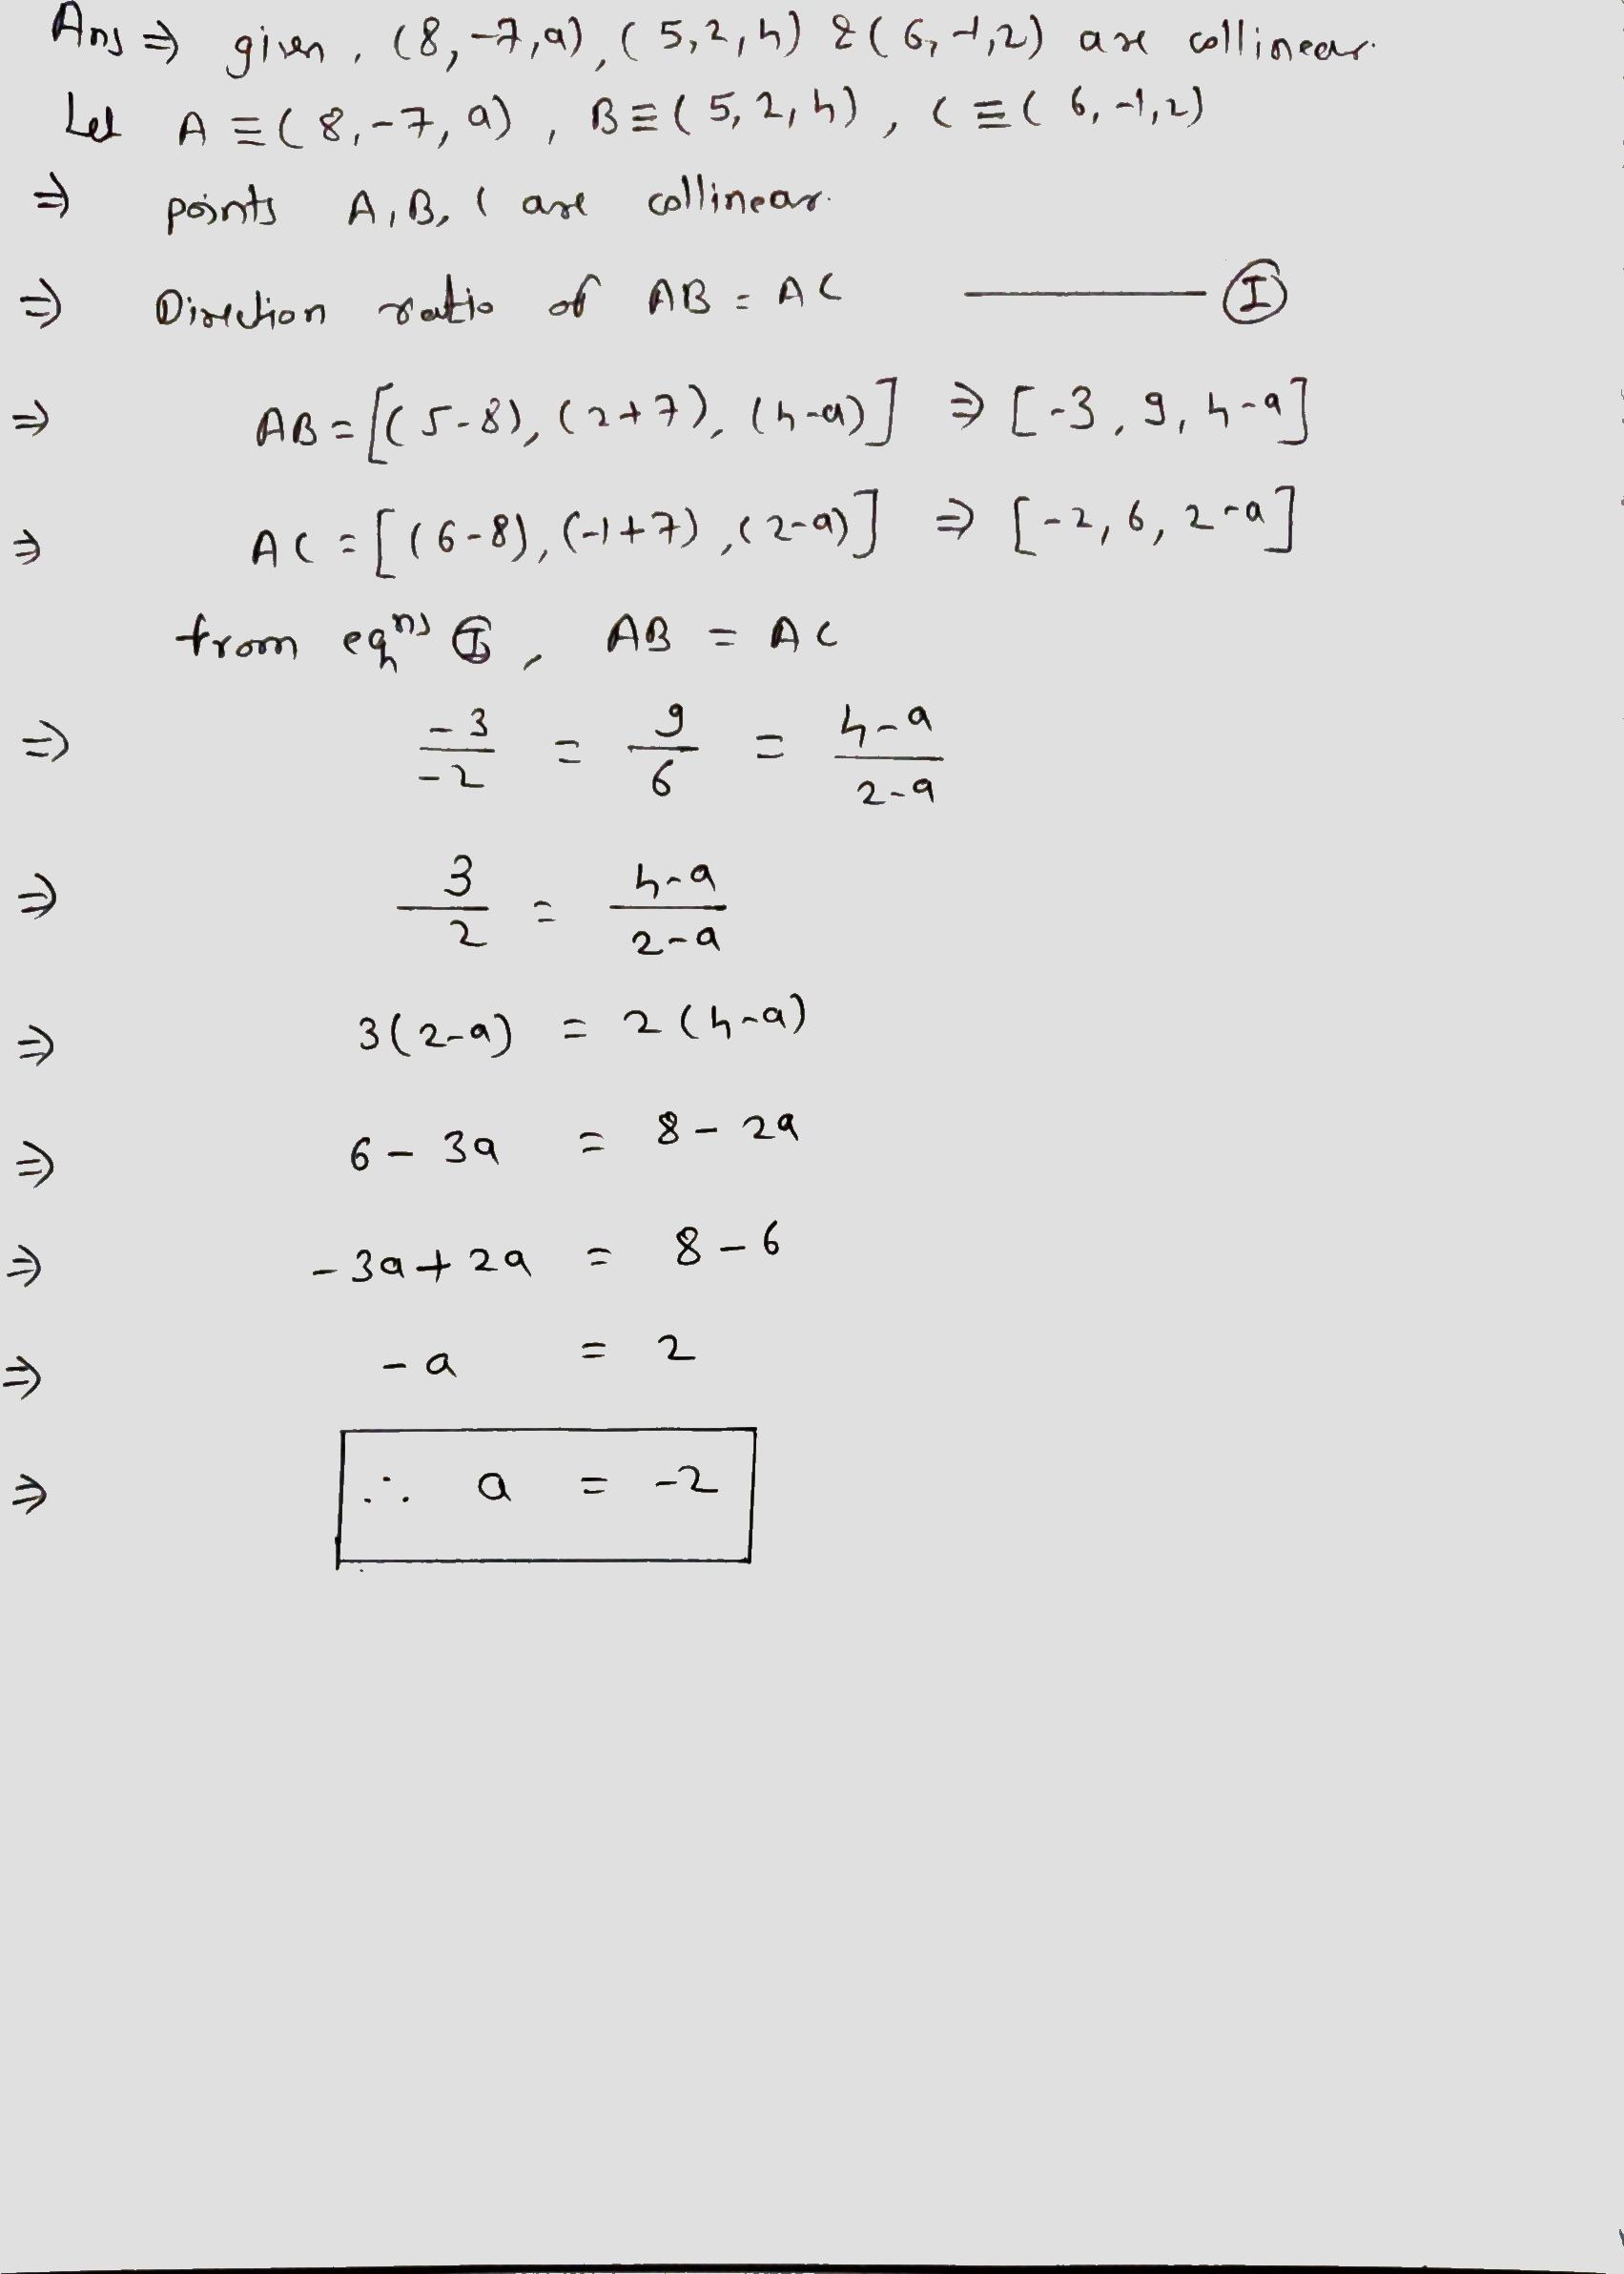 Ans ⇒ given, (8, -7, a), (5, 2, 4) & (6, -1, 2) are collinear.
Let A ≡ (8, -7, a), B ≡ (5, 2, 4), C ≡ (6, -1, 2)
⇒ points A, B, C are collinear.
⇒ Direction ratio of AB = AC ——— (I)
⇒ AB = [(5-8), (2+7), (4-a)] ⇒ [-3, 9, 4-a]
⇒ AC = [(6-8), (-1+7), (2-a)] ⇒ [-2, 6, 2-a]
from eqns (I), AB = AC
⇒ -3/-2 = 9/6 = 4-a/2-a
⇒ 3/2 = 4-a/2-a
⇒ 3(2-a) = 2(4-a)
⇒ 6 - 3a = 8 - 2a
⇒ -3a + 2a = 8 - 6
⇒ -a = 2
⇒ ∴ a = -2